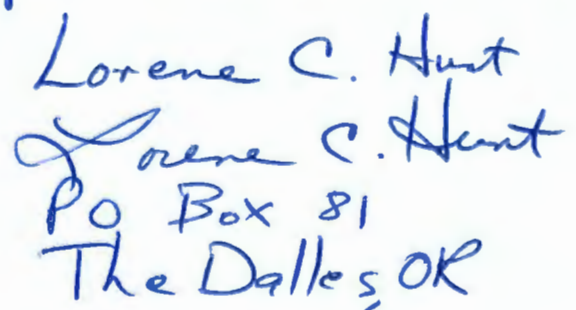 Lorene C. Hunt
Lorene C. Hunt
PO Box 81
The Dalles, OR